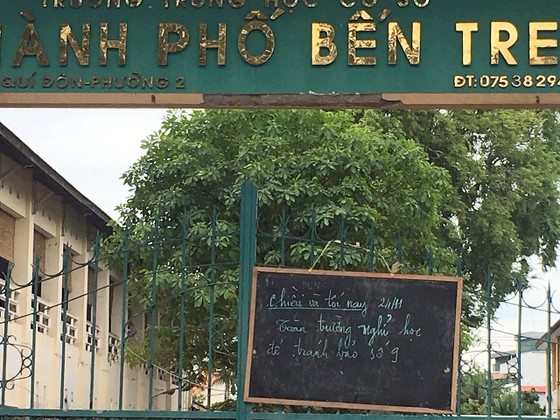 TRƯỜNG TRUNG HỌC CƠ SỞ
HÀNH PHỐ BẾN TRE
QUÍ ĐÔN-PHƯỜNG 2 ĐT: 075 3829
Chiều và tối nay 24/11
Toàn trường nghỉ học
để tránh bão số 9